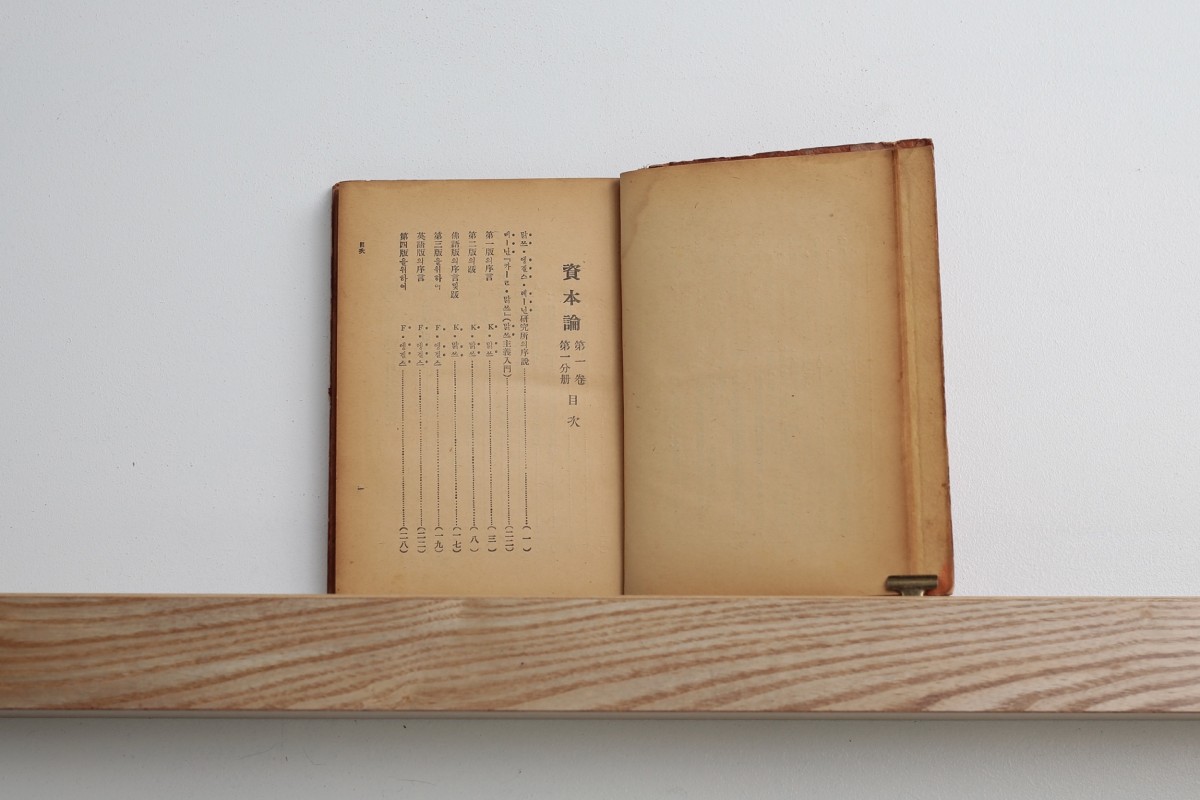 資本論 第一卷 第一分册 目次
맑쓰·엥겔스·레—닌硏究所의序說……(一)
레—닌「카—ㄹ·맑쓰」(맑쓰主義入門)……(二二)
第一版의序言 K·맑쓰……(三)
第二版의跋 K·맑쓰……(八)
佛語版의序言및跋 K·맑쓰……(一七)
第三版을위하야 F·엥겔스……(一九)
英語版의序言 F·엥겔스……(二二)
第四版을위하여 F·엥겔스……(二八)
目次
一